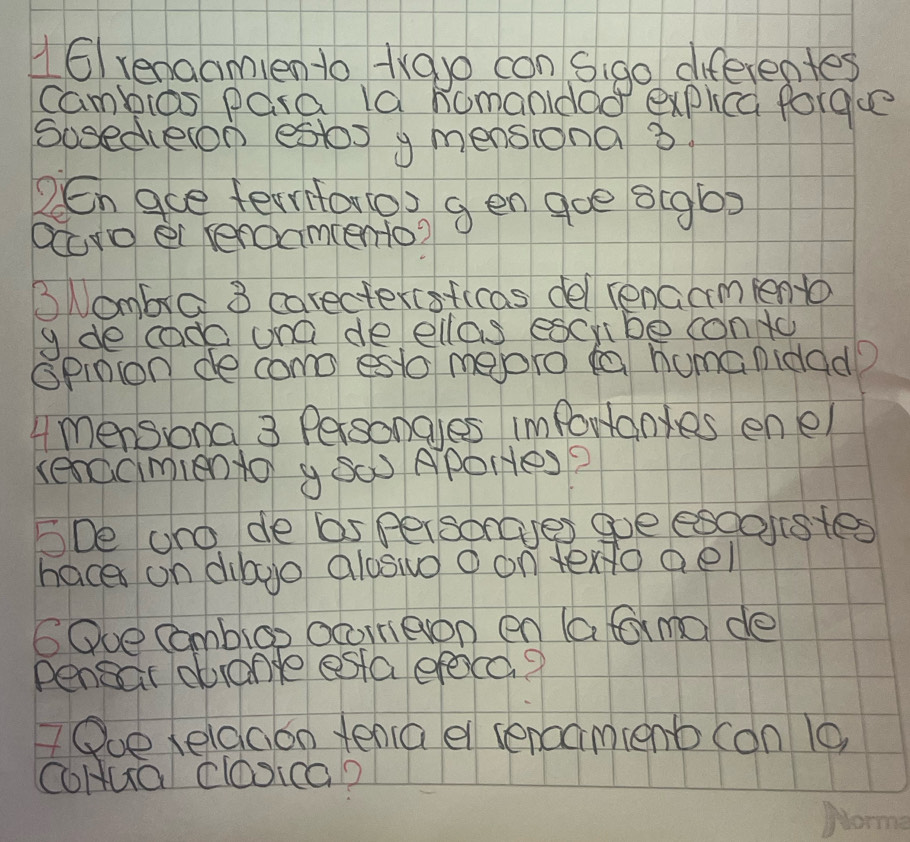 1 El renacimiento trajo con Sigo diferentes
cambios para la humanidad explica porque
Susedieron estos y mensiona 3.
2 En que territorios y en que siglos
ocurro el renacimiento?
3 Nombra 3 carecteristicas del renacimiento
y de cada una de ellas escribe con tu
Opinion de como esto mejoro la humanidad?
4 mensiona 3 Personajes importantes en el
renacimiento y sus Aportes?
5 De uno de los personajes que escogistes
haces un dibujo alusivo o un texto a el
6 Que cambios ocurrieron en la forma de
pensar durante esta epoca?
7 Que relación tenia el renacimiento con la
cultura clasica?
Norma